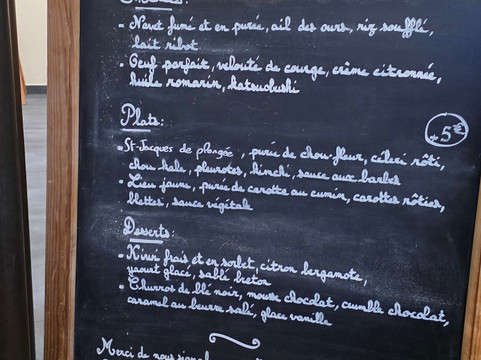 - Navet fumé et en purée, ail des ours, riz soufflé,
lait ribot
- Oeuf parfait, velouté de courge, crème citronnée,
huile romarin, katsuobushi
Plats:
- St-Jacques de plongée, purée de chou-fleur, céleri rôti,
chou kale, pleurotes, kimchi, sauce aux barbes
+5€
- Lieu jaune, purée de carotte au cumin, carottes rôties,
blettes, sauce végétale
Desserts:
- Kiwi frais et en sorbet, citron bergamote,
yaourt glacé, sablé breton
- Churros de blé noir, mousse chocolat, crumble chocolat,
caramel au beurre salé, glace vanille
Merci de nous